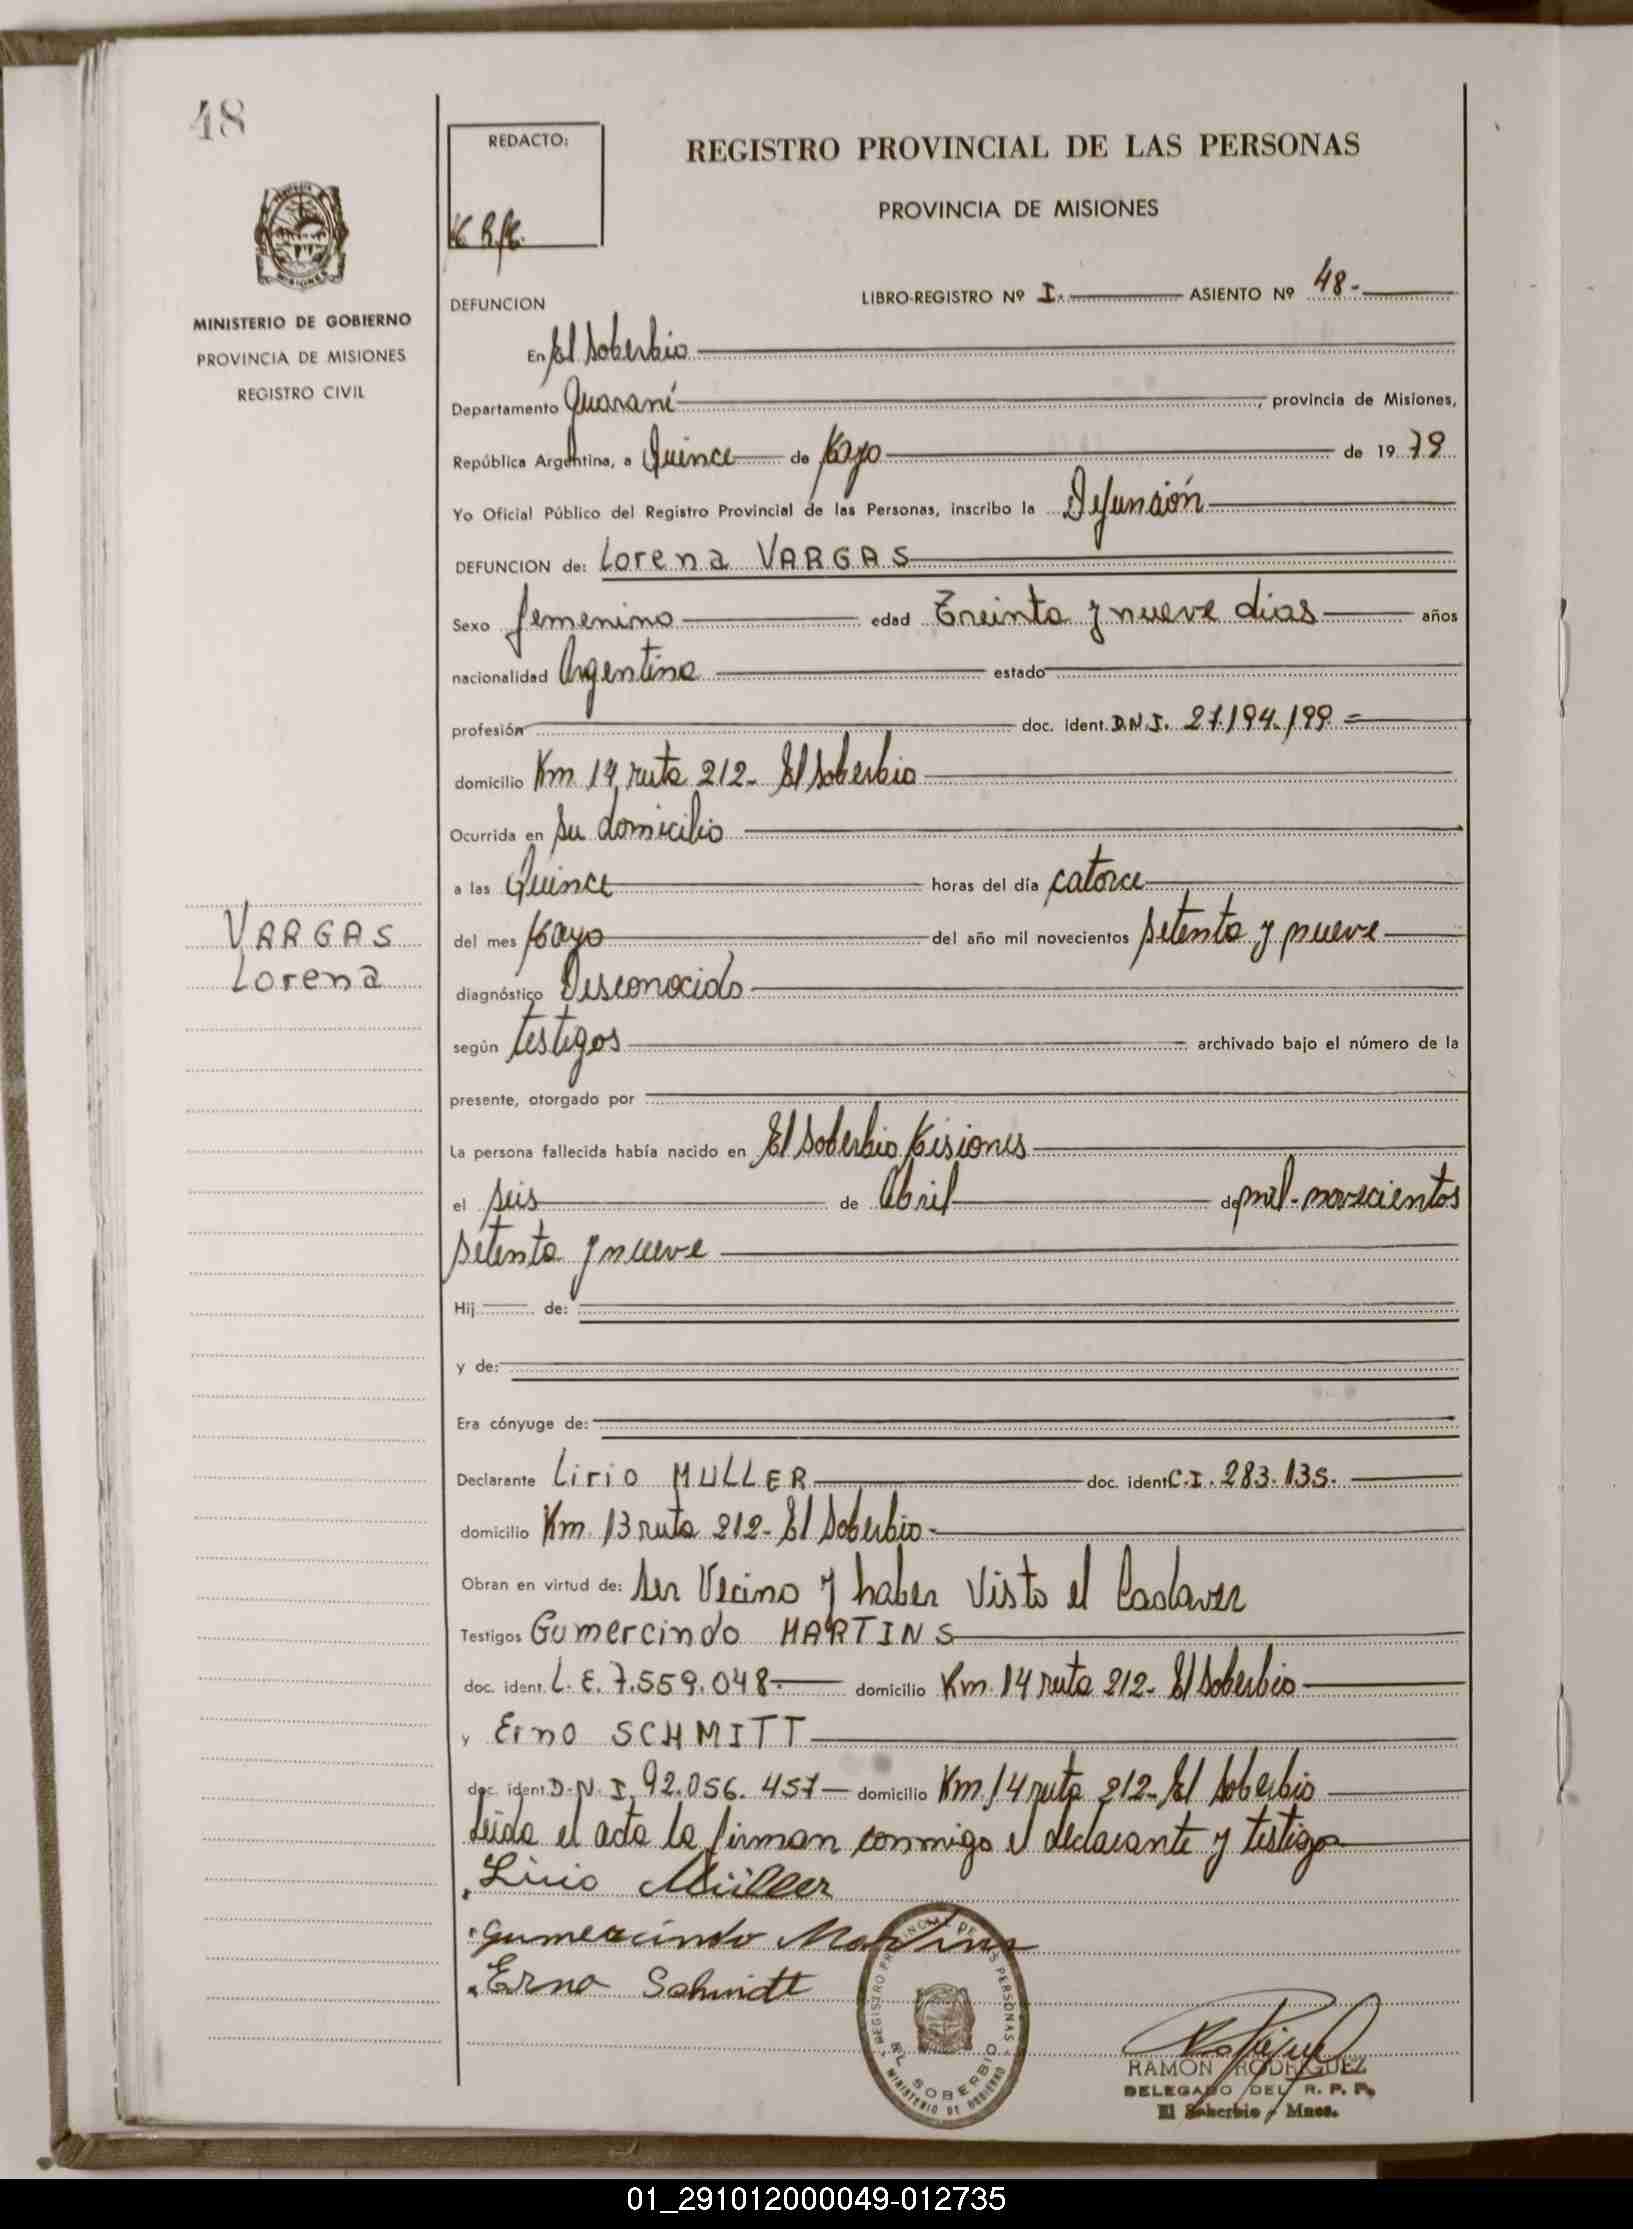 48
REDACTO:
REGISTRO PROVINCIAL DE LAS PERSONAS
PROVINCIA DE MISIONES
MISIONES
MINISTERIO DE GOBIERNO
PROVINCIA DE MISIONES
REGISTRO CIVIL
DEFUNCION
LIBRO-REGISTRO Nº I. ASIENTO Nº 48.-
En El Soberbio
Departamento Guaraní, provincia de Misiones,
República Argentina, a Quince de Mayo de 1979
Yo Oficial Público del Registro Provincial de las Personas, inscribo la Defunción
DEFUNCION de: Lorena VARGAS
Sexo femenino edad Treinta y nueve dias años
nacionalidad Argentina estado
profesión doc. ident. D.N.I. 27.194.199.=
domicilio Km. 14 ruta 212- El Soberbio
Ocurrida en su domicilio
a las Quince horas del día catorce
del mes Mayo del año mil novecientos setenta y nueve
VARGAS
Lorena
diagnóstico Desconocido
según testigos archivado bajo el número de la
presente, otorgado por
La persona fallecida había nacido en El Soberbio Misiones
el seis de Abril de mil-novecientos
setenta y nueve
Hij de:
y de:
Era cónyuge de:
Declarante Lirio MULLER doc. ident C.I. 283.135.
domicilio Km. 13 ruta 212- El Soberbio-
Obran en virtud de: ser Vecino y haber visto el Cadaver
Testigos Gumercindo MARTINS
doc. ident. L.E. 7.559.048.- domicilio Km. 14 ruta 212- El Soberbio
y Erno SCHMITT
doc. ident D.N.I. 92.056.457- domicilio Km. 14 ruta 212- El Soberbio
Leida el acta la firman conmigo el declarante y testigo
Lirio Müller
Gumercindo Martins
Erno Schmidt
REGISTRO PROVINCIAL DE LAS PERSONAS
EL SOBERBIO
MINISTERIO DE GOBIERNO
RAMON RODRIGUEZ
DELEGADO DEL R. P. P.
El Soberbio - Mnes.
01_291012000049-012735